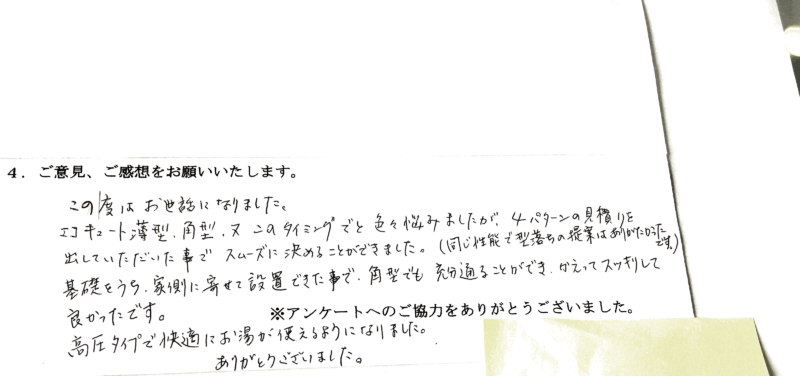 4. ご意見、ご感想をお願いいたします。
この度はお世話になりました。
エコキュート薄型、角型、又このタイミングでと色々悩みましたが、4パターンの見積りを
出していただいた事でスムーズに決めることができました。(同じ性能で型落ちの提案はありがたかった
です。)
基礎をうち、家側に寄せて設置できた事で、角型でも充分通ることができ、かえってスッキリして
良かったです。
※アンケートへのご協力をありがとうございました。
高圧タイプで快適にお湯が使えるようになりました。
ありがとうございました。